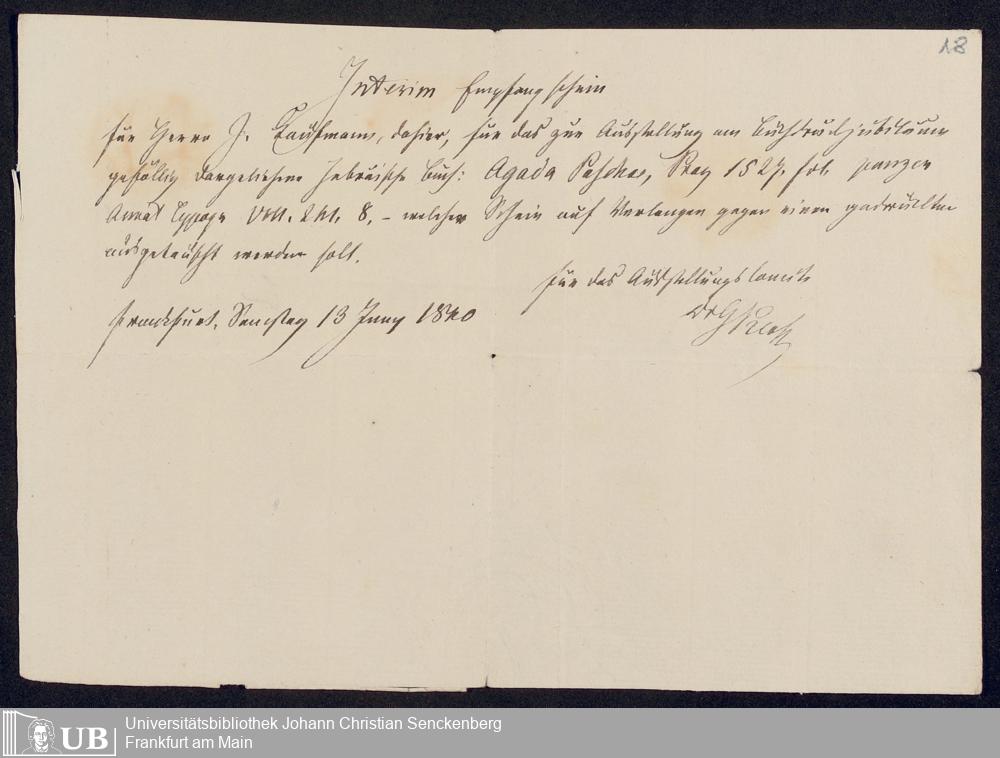 18
Interim Empfangschein
für Herrn J. Kaufmann, dahier, für das zur Ausstellung am Buchdruckjubiläum
gefällig dargeliehene hebräische Buch: Agada Paschae, Prag 1527. fol. panzer
Annal Typogr VIII. 241. 8. – welcher Schein auf Verlangen gegen einen gedruckten
ausgetauscht werden soll.
für das Ausstellungscomite
Frankfurt, Samstag 13 Juny 1840
Dr G Kloß
UB
Universitätsbibliothek Johann Christian Senckenberg
Frankfurt am Main